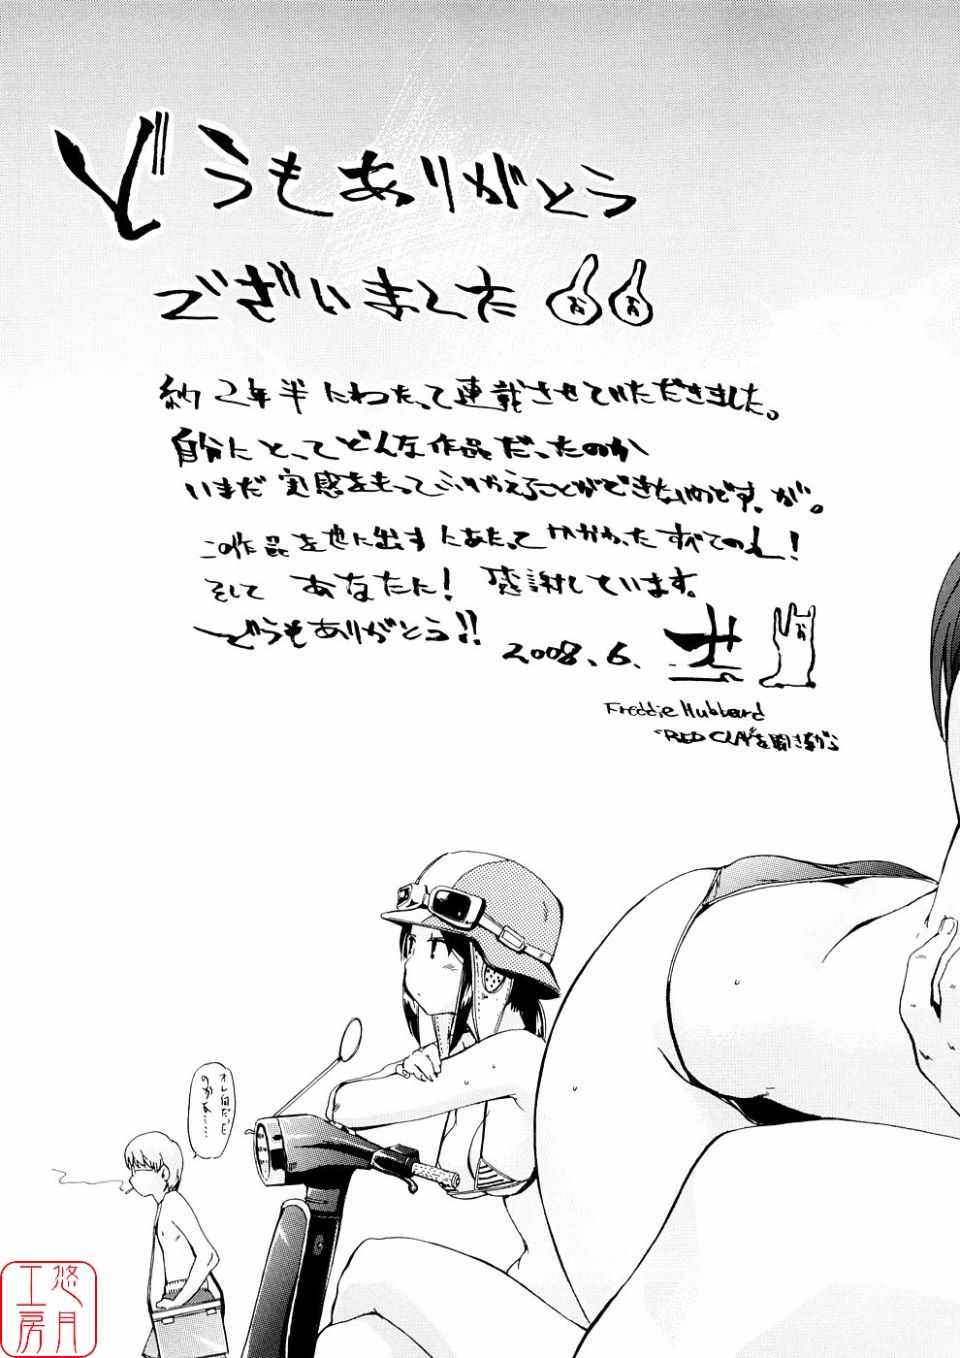 どうもありがとう
ございました
約2年半にわたって連載させていただきました。
自分にとってどんな作品だったのか
いまだ実感をもってふりかえることができないのですが。
この作品を世に出すにあたってかかわったすべての人!
そして あなたに! 感謝しています。
どうもありがとう!!
2008.6.
Freddie Hubbard
"RED CLAY"を聞きながら
オレ何だった
のかな……
G
悠月
工房